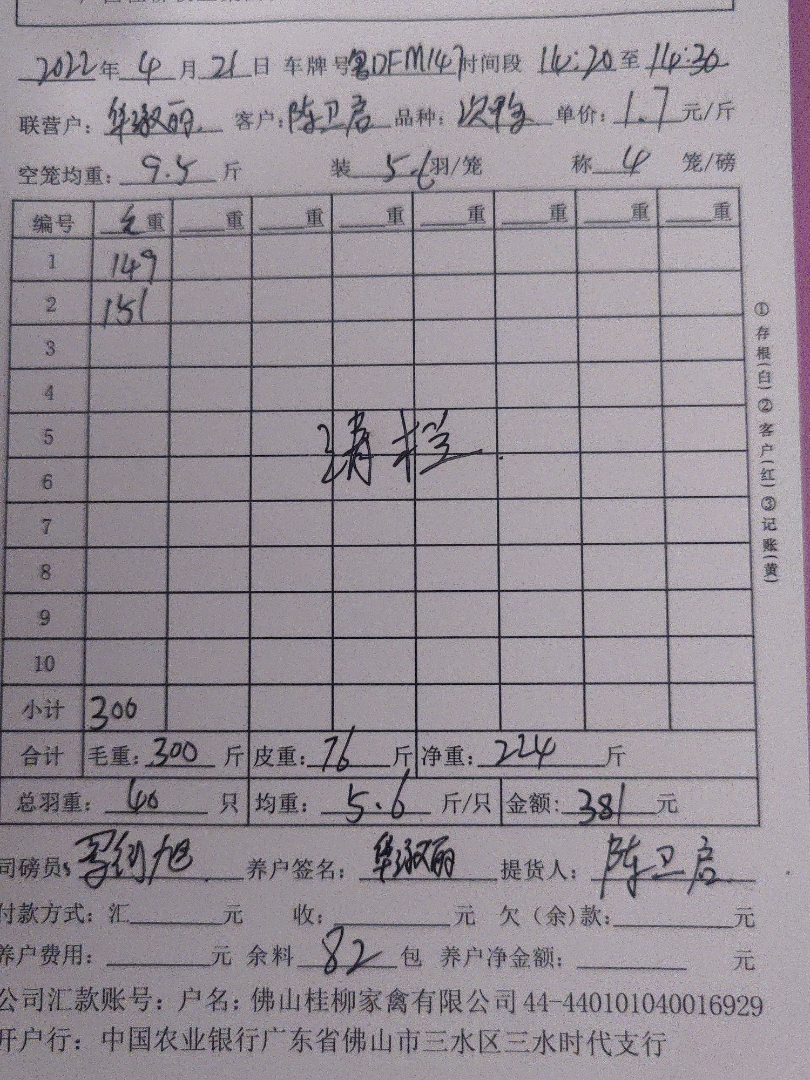 2022年4月21日 车牌号粤DFM147时间段 14:20至14:30
联营户：华淑丽 客户：陈卫启 品种：次鸭 单价：1.7元/斤
空笼均重：9.5斤 装5.6羽/笼 称4笼/磅
编号 毛重 重 重 重 重 重 重 重
1 149
2 151
3
4
5
6
7
8
9
10
清栏
小计 300
合计 毛重：300斤 皮重：76斤 净重：224斤
总羽重：40只 均重：5.6斤/只 金额：381元
司磅员： 养户签名：华淑丽 提货人：陈卫启
付款方式：汇 元 收： 元 欠（余）款： 元
养户费用： 元 余料82包 养户净金额： 元
公司汇款账号：户名：佛山桂柳家禽有限公司44-440101040016929
开户行：中国农业银行广东省佛山市三水区三水时代支行
①存根（白）②客户（红）③记账（黄）